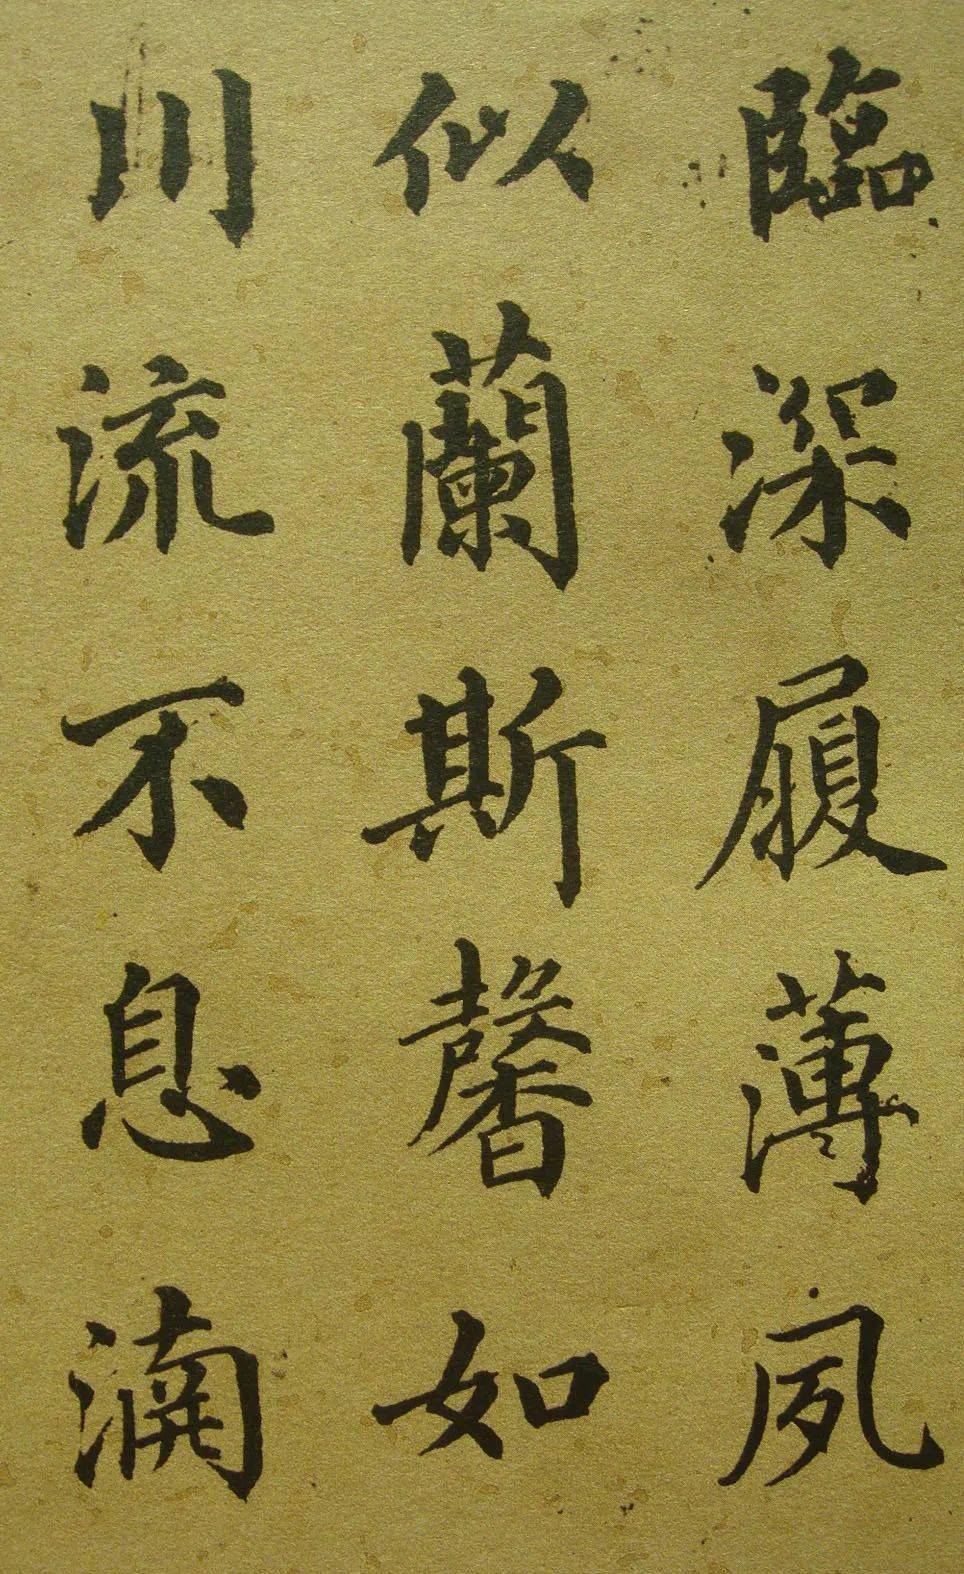 臨深履薄夙
似蘭斯馨如
川流不息淵